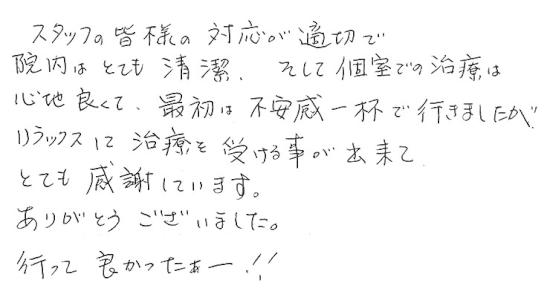 スタッフの皆様の対応が適切で
院内はとても清潔、そして個室での治療は
心地良くて、最初は不安感一杯で行きましたが
リラックスして治療を受ける事が出来て
とても感謝しています。
ありがとうございました。
行って良かったぁー!!